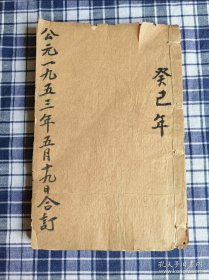 癸巳年
公元一九五三年五月十九日合訂
孔夫子旧书网